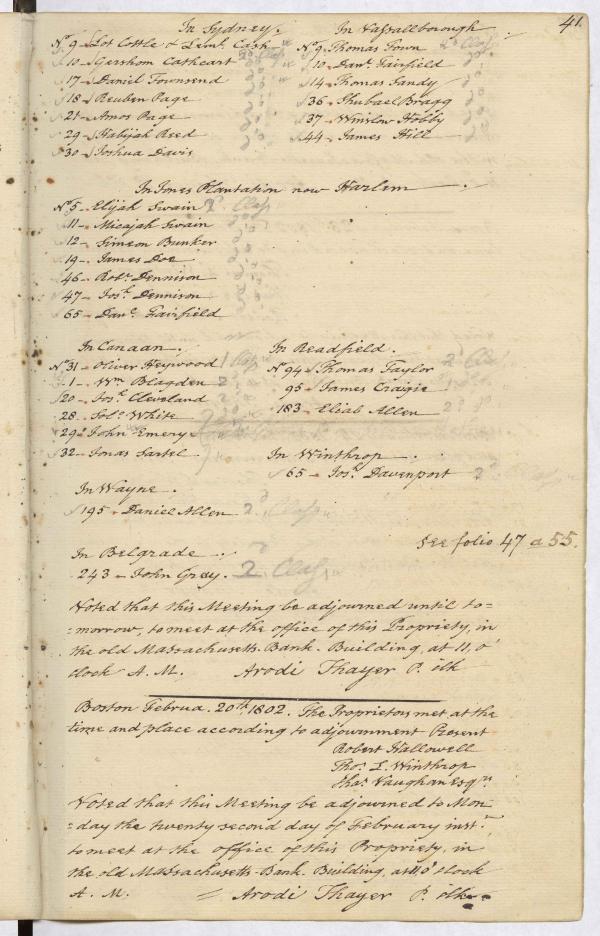 41.
In Sydney.
No 9 - Lot Cottle & Cash
10 - Gershom Cathcart 2d Class
17 - Daniel Townsend do
18 - Reuben Page do
21 - Amos Page do
29 - Habijah Reed do
30 - Joshua Davis
In Vassallborough
No 9 - Thomas Town 2d Class
10 - Danl. Fairfield do
14 - Thomas Fandy do
36 - Shubael Bragg do
37 - Winslow Hobby do
44 - James Hill do
In Jones Plantation now Harlem
No 5 - Elijah Swain 2d. Class
11 - Micajah Swain do
12 - Simeon Bunker do
19 - James Doe do
46 - Robt. Dennison do
47 - Josh. Dennison do
65 - Danl. Fairfield
In Canaan.
No 31 - Oliver Heywood 1 Class
1 - Wm Blagden 2
20 - Jos. Cleveland
28. Solo. White
29 - John Emery
32 - Jonas Sartel
In Readfield.
No 94 - Thomas Taylor 2d Class
95 - James Craige
183 - Eliab Allen 2d
In Winthrop
65 - Josh. Davenport 2d
In Wayne.
195 - Daniel Allen 2d Class
See folio 47 a 55.
In Belgrade
243 - John Gray. 2d Class
Noted that this Meeting be adjourned until to=
=morrow, to meet at the office of this Propriety, in
the old Massachusetts-Bank-Building, at 11, o'
clock A. M. Arodi Thayer P. Clk
Boston Februa. 20th. 1802. The Proprietors met at the
time and place according to adjournment Present
Robert Hallowell
Thos. L. Winthrop
Chas. Vaughan Esqrs.
Noted that this Meeting be adjourned to Mon=
=day the twenty second day of February inst.
to meet at the office of this Propriety, in
the old Massachusetts-Bank-Building, at 11, o'clock
A. M. = Arodi Thayer P. Clk